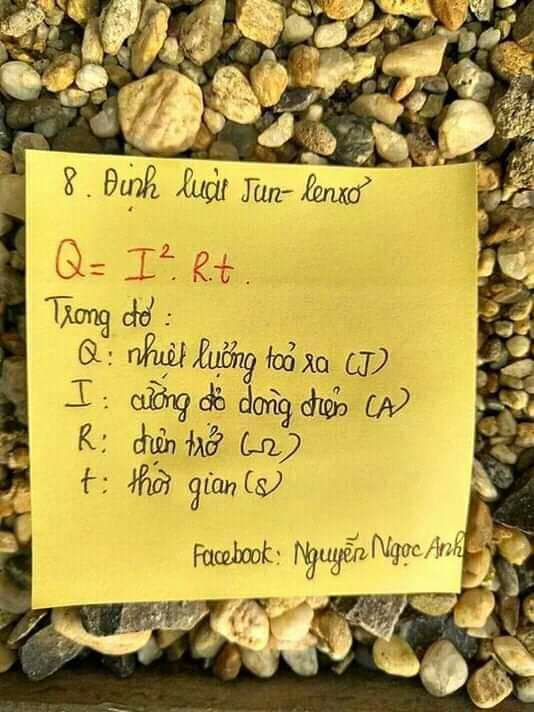 8. Định luật Jun-lenxơ
Q = I². R.t.
Trong đó:
Q: nhiệt lượng toả ra (J)
I: cường độ dòng điện (A)
R: điện trở (Ω)
t: thời gian (s)
Facebook: Nguyễn Ngọc Anh